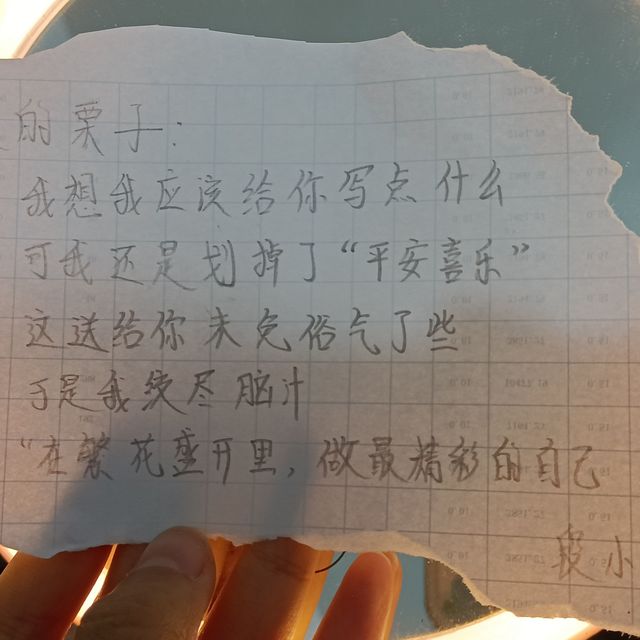 的栗子：
我想我应该给你写点什么
可我还是划掉了“平安喜乐”
这送给你未免俗气了些
于是我绞尽脑汁
“在繁花盛开里，做最精彩的自己
小